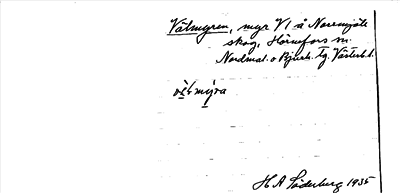 Vålmyren, myr V1 å Norrmjöle
skog, Hörnefors sn.
Nordmal. o Bjurh. tg. Västerb. l.
myra
H A Söderberg 1935